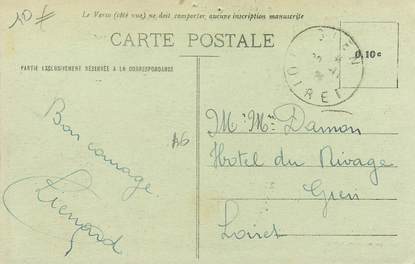 10 F
Le Verso (côté vue) ne doit comporter aucune inscription manuscrite
CARTE POSTALE
0,10 c
PARTIE EXCLUSIVEMENT RÉSERVÉE A LA CORRESPONDANCE
LOIRET
Bon courage
Lienard
M. Mme Damon
Hotel du Rivage
Gien
Loiret